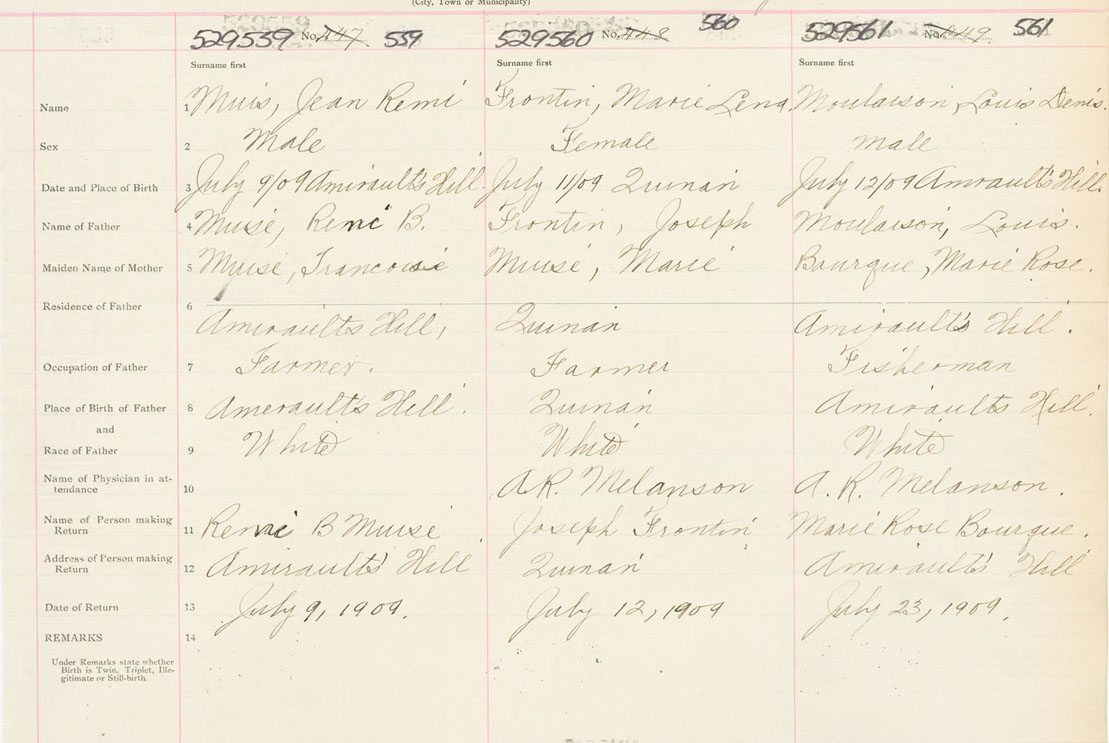 (City, Town or Municipality)
529559 No. 447 559 529560 No. 448 560 529561 No. 449. 561
Surname first Surname first Surname first
Name 1 Muis, Jean Remi Frontin, Marie Lena Moulaison, Louis Denis.
Sex 2 Male Female male
Date and Place of Birth 3 July 9/09 Amirault's Hill. July 11/09 Quinan July 12/09 Amirault's Hill.
Name of Father 4 Muise, Remi B. Frontin, Joseph Moulaison, Louis.
Maiden Name of Mother 5 Muise, Francoise Muise, Marie Bourque, Marie Rose.
Residence of Father 6
Amiraults Hill, Quinan Amirault's Hill.
Occupation of Father 7 Farmer. Farmer Fisherman
Place of Birth of Father 8 Amerault's Hill. Quinan Amiraults Hill.
and
Race of Father 9 White White White
Name of Physician in at-
tendance 10 A.R. Melanson A. R. Melanson.
Name of Person making
Return 11 Remi B Muise Joseph Frontin Marie Rose Bourque.
Address of Person making
Return 12 Amirault's Hill Quinan Amirault's Hill
Date of Return 13 July 9, 1909. July 12, 1909 July 23, 1909.
REMARKS 14
Under Remarks state whether
Birth is Twin, Triplet, Ille-
gitimate or Still-birth.